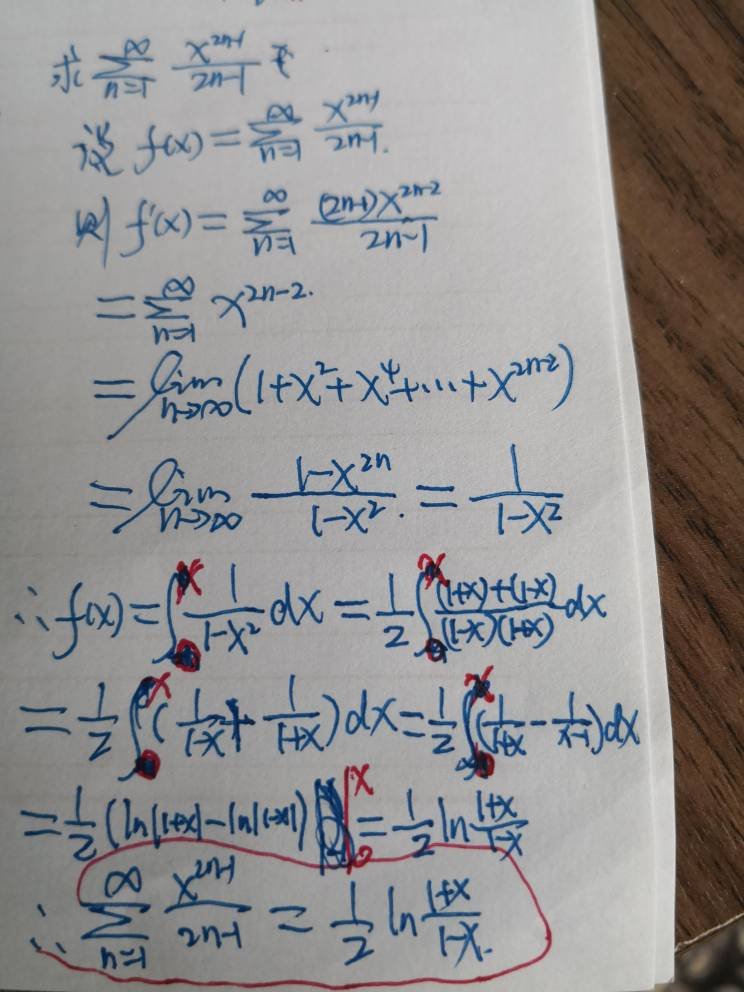 求 ∑_{n=1}^{∞} x^{2n-1}/(2n-1)
设 f(x) = ∑_{n=1}^{∞} x^{2n-1}/(2n-1).
则 f'(x) = ∑_{n=1}^{∞} (2n-1)x^{2n-2}/(2n-1)
= ∑_{n=1}^{∞} x^{2n-2}.
= lim_{n→∞} (1+x^2+x^4+⋯+x^{2n-2})
= lim_{n→∞} (1-x^{2n})/(1-x^2). = 1/(1-x^2)
∴ f(x) = ∫_0^x 1/(1-x^2) dx = 1/2 ∫_0^x ((1+x)+(1-x))/((1-x)(1+x)) dx
= 1/2 ∫_0^x (1/(1-x) + 1/(1+x)) dx = 1/2 ∫_0^x (1/(1+x) - 1/(x-1)) dx
= 1/2 (ln|1+x| - ln|1-x|) |_0^x = 1/2 ln (1+x)/(1-x)
∴ ∑_{n=1}^{∞} x^{2n-1}/(2n-1) = 1/2 ln (1+x)/(1-x).